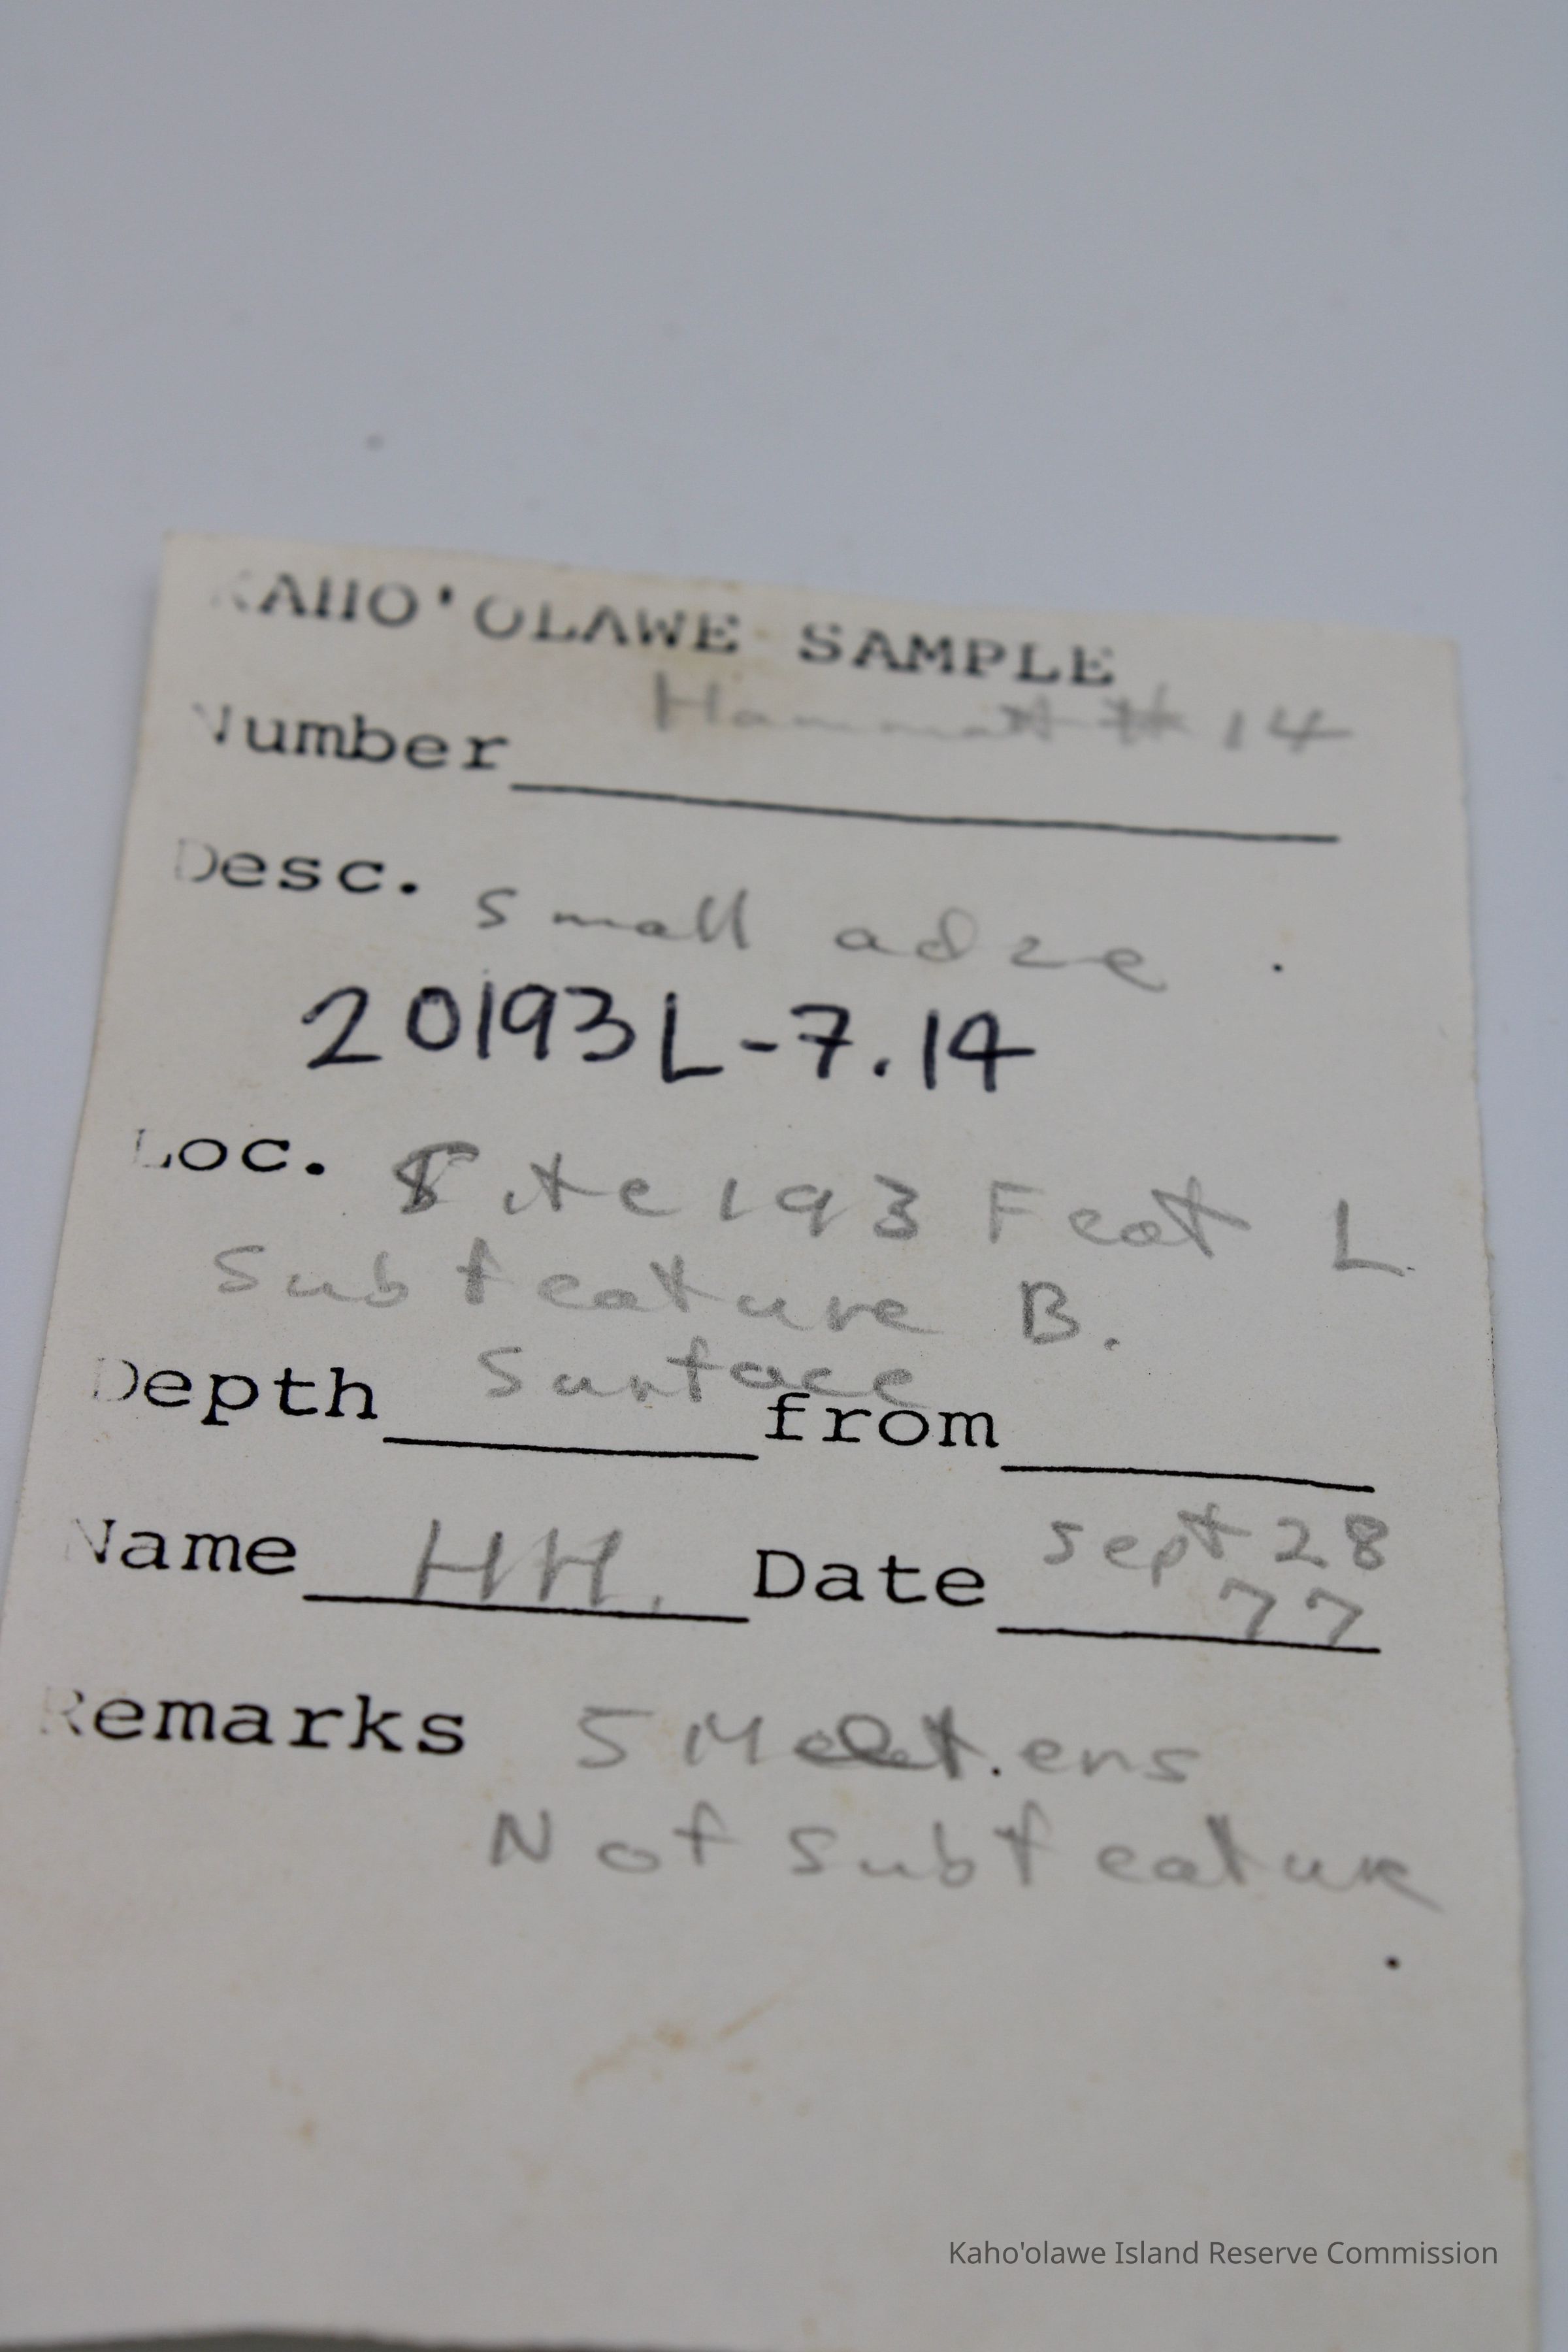 KAHO'OLAWE SAMPLE
Number Hammatt # 14
Desc. small adze .
20193L-7.14
Loc. Site 193 Feat L
Subfeature B.
Depth Surface from
Name HH. Date Sept 28
77
Remarks 5 Meters
N of Subfeature
Kaho'olawe Island Reserve Commission